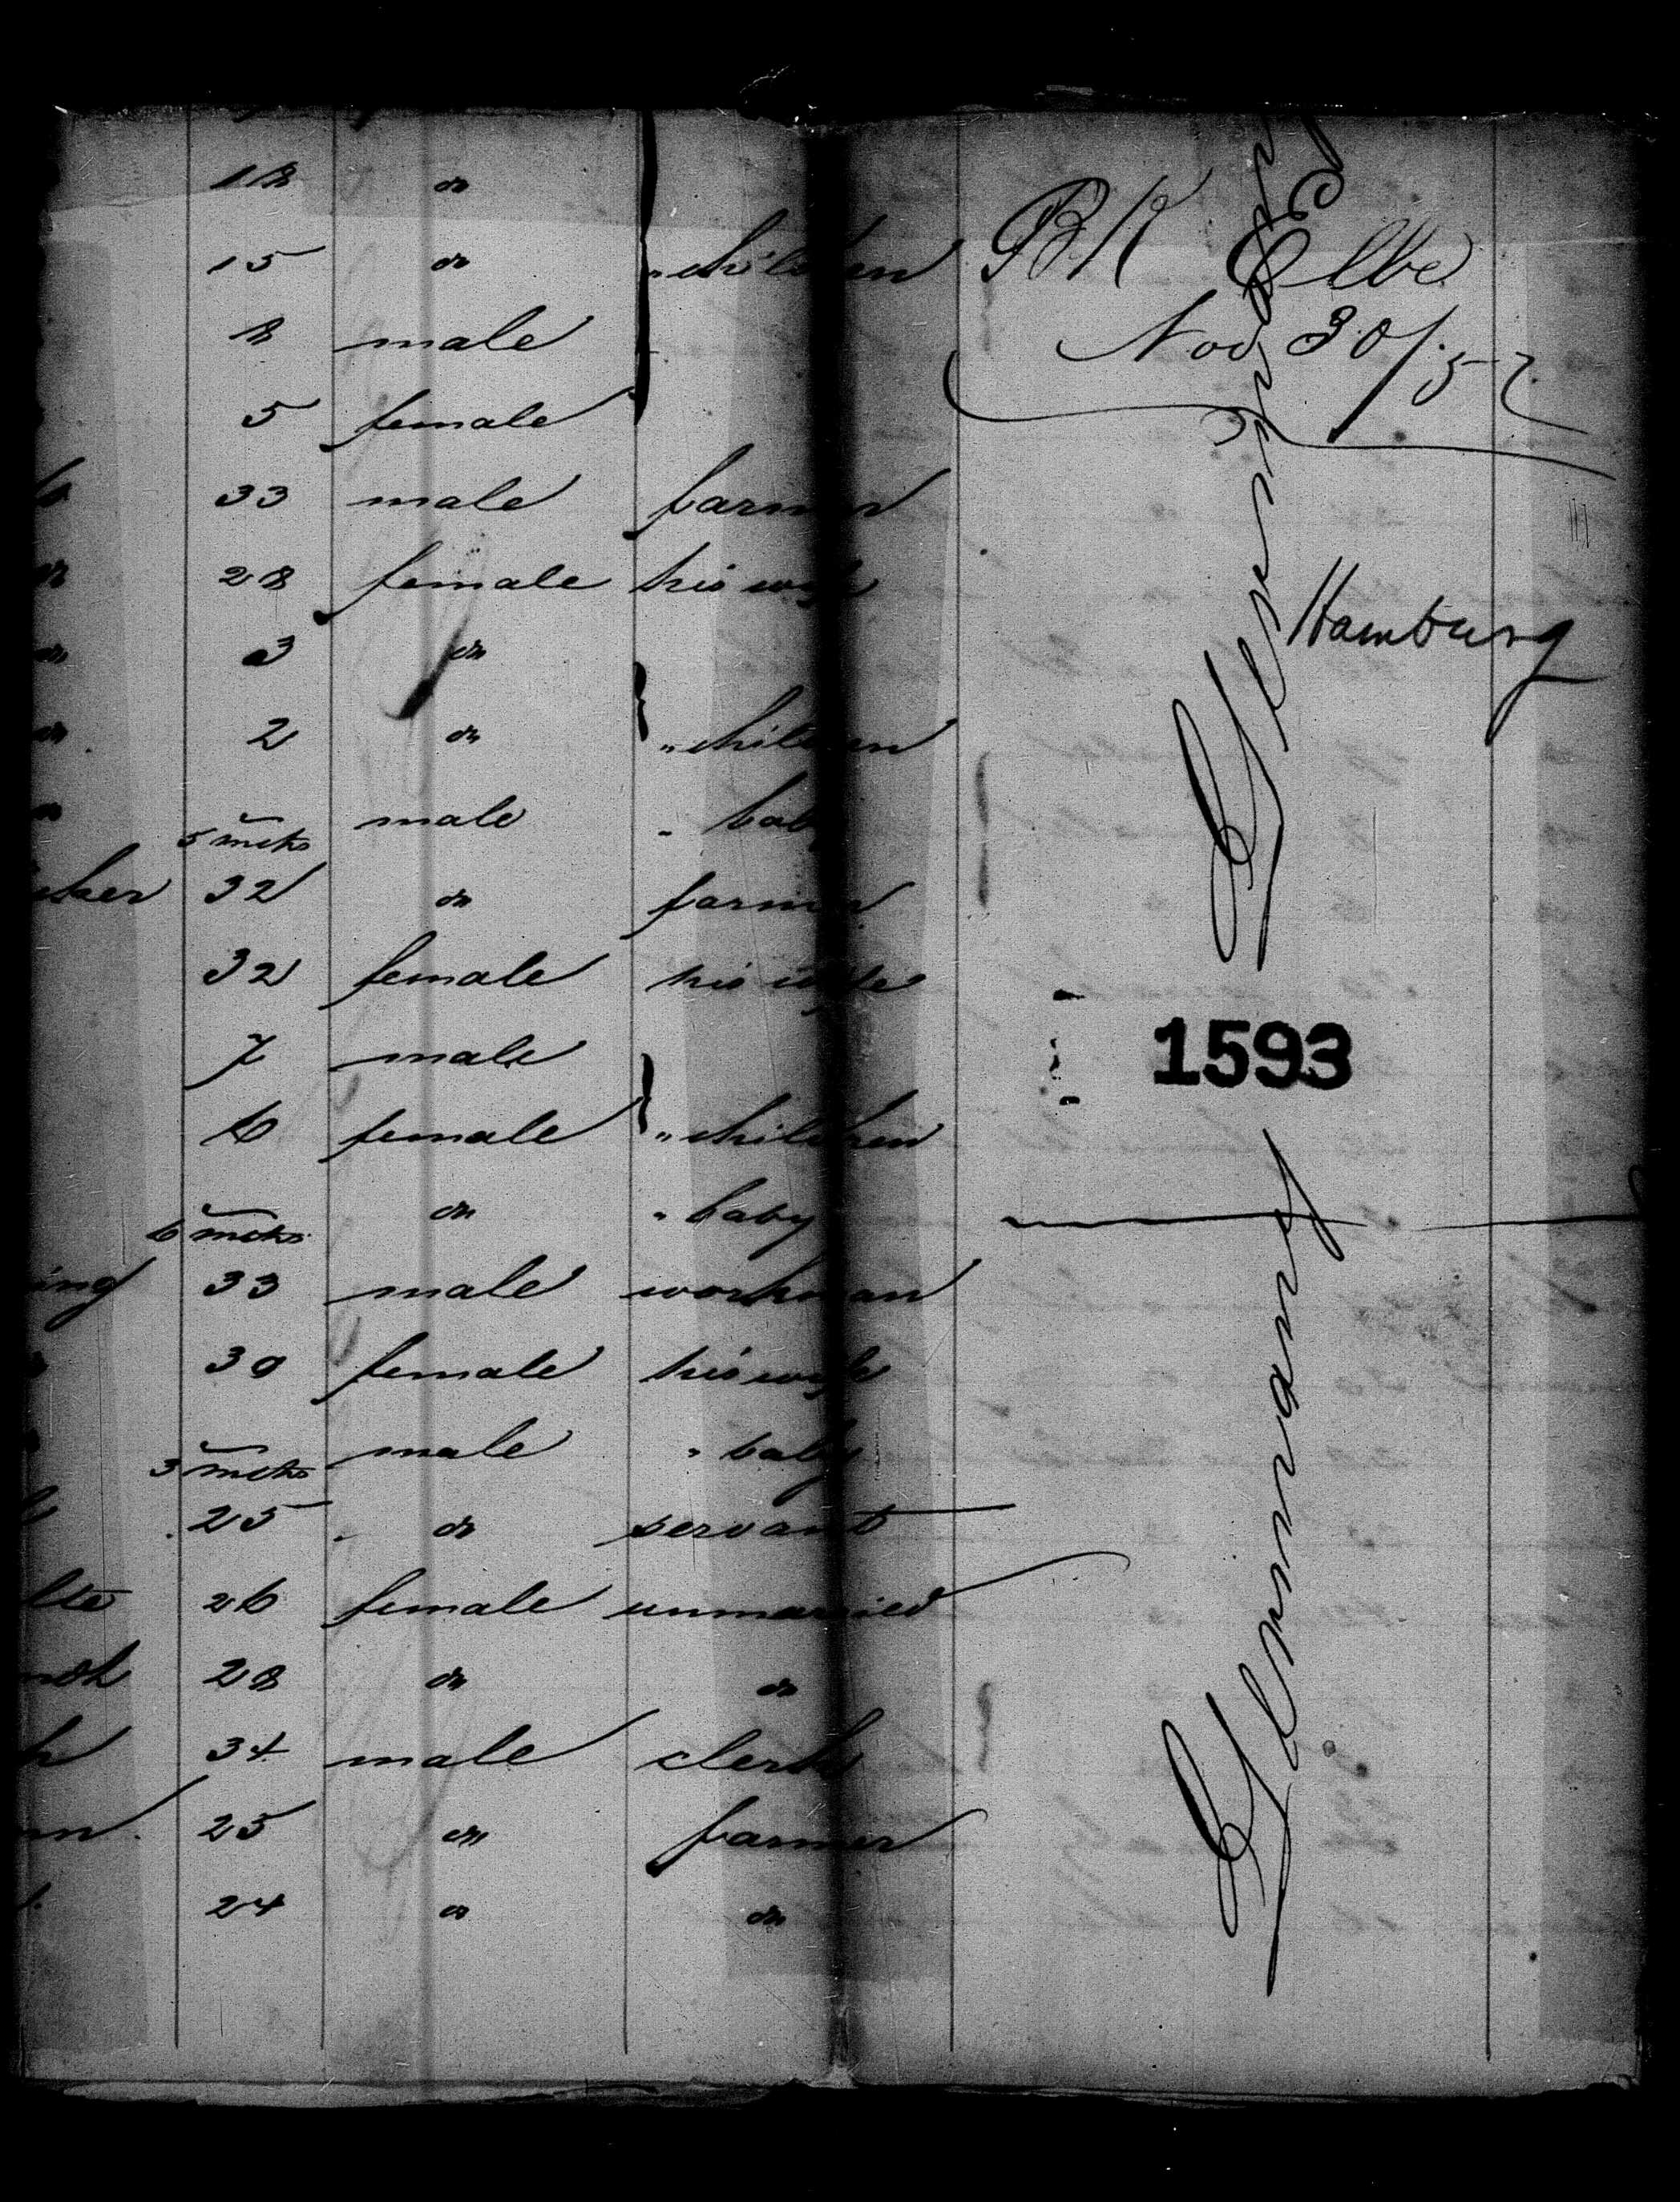 18 do
15 do " children
8 male
5 female
33 male farmer
28 female his wife
3 do
2 do " children
5 mths male " baby
32 do farmer
32 female his wife
7 male
6 female " children
6 mths do " baby
33 male workman
30 female his wife
3 mths male " baby
25 do servant
26 female unmarried
28 do do
34 male clerk
25 do farmer
24 do do
BK Elbe
Nov 30/57
Germany
Hamburg
1593
Germany